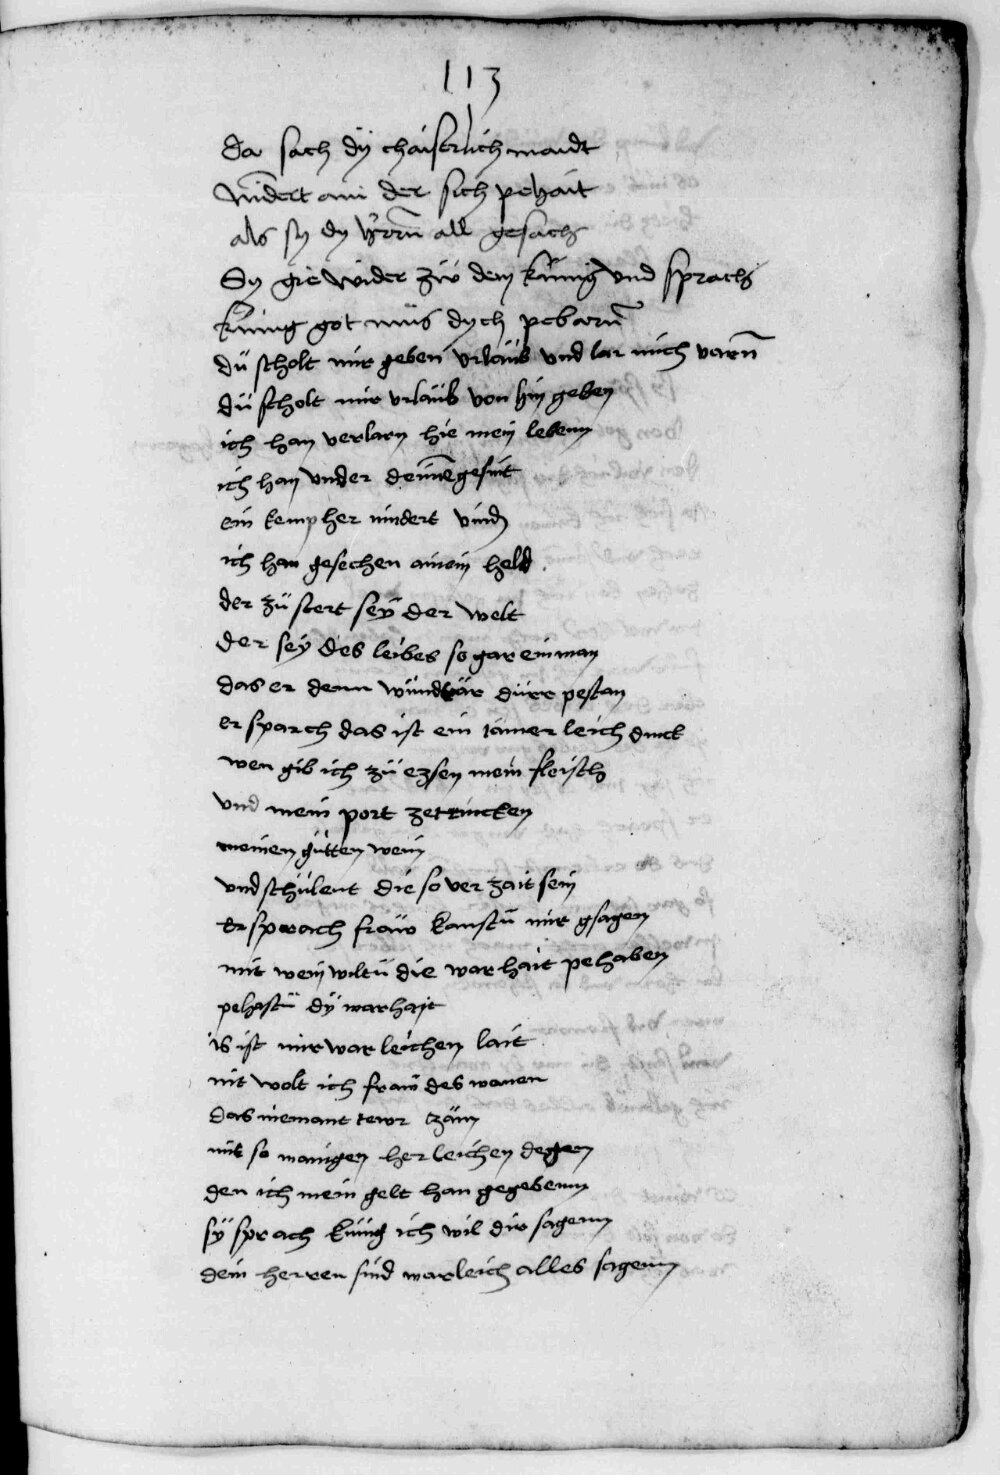 113
da sach dÿ chaiserlich maidt
nidert ain der sich pehait
als sy dy herrn all gesach
Sy gie wider zw dem kunig vnd sprach
kunig got müs dych pebarn
dü scholt mir geben vrlaüb vnd lar mich varn
dü scholt mir vrlaüb von hin geben
ich han verlarn hie mein lebenn
ich han vnder deinnē gesint
ein kempher nindert vind
ich han gesechen ainein held
der zü stert seÿ der welt
der seÿ des leibes so gar ein man
das er denn wünd dürr pestan
er sparch das ist ein iämer leich dinck
wen gib ich zü ezsen mein fleisch
vnd mein port zetrincken
meinen gütten wein
vnd schülent die so ver zait sein
Er sprach fraw kanstü mir gsagen
mit wein wiltü die warhait pehaben
pehastü dÿ warhait
is ist mir warleichen lait
nit wolt ich fraw des wanen
das niemant tewr zäm
mit so manigen herleichen degen
den ich mein gelt han gegebenn
sÿ sprach kunig ich wil dir sagenn
dein herren sind warleich alles sagenn